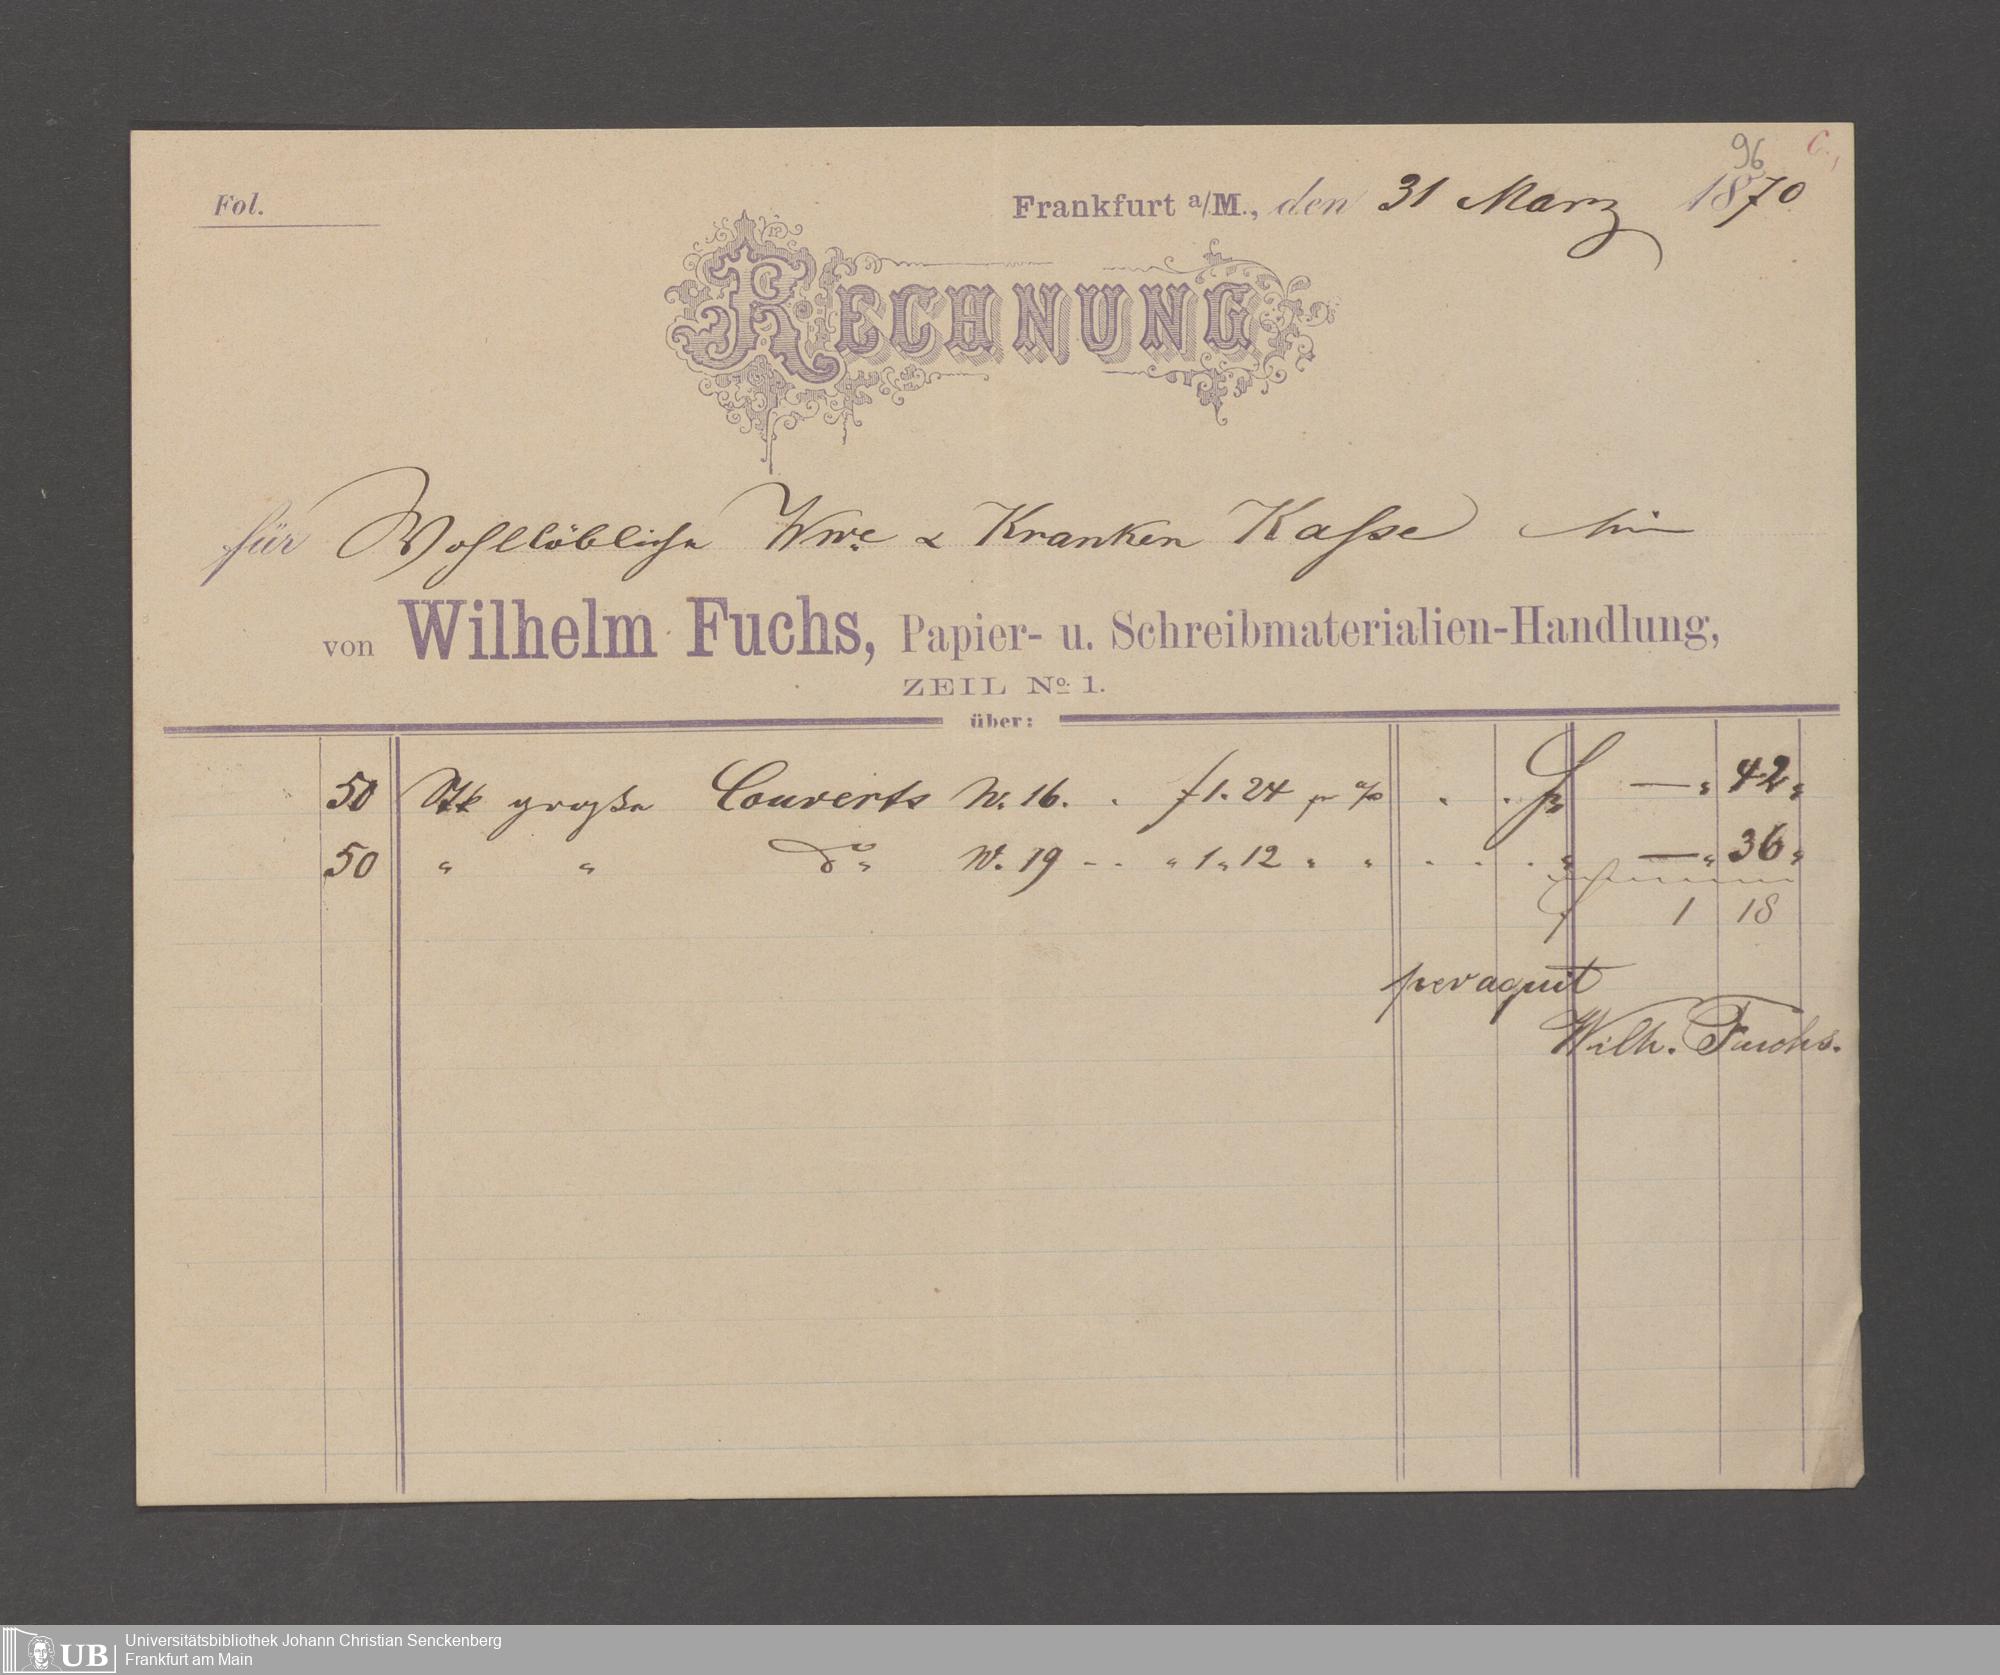 96
Fol.
Frankfurt a/M., den 31 März 1870
RECHNUNG
für Wohllöbliche Wwe & Kranken Kasse hier
von Wilhelm Fuchs, Papier- u. Schreibmaterialien-Handlung,
ZEIL No. 1.
über:
50 Stk große Couverts N. 16. . f 1. 24 pr % . . f — „ 42 „
50 „ „ do „ N. 19 - . . „ 1 „ 12 „ „ . . . „ — „ 36 „
f 1 18
per acquit
Wilh. Fuchs.
UB Universitätsbibliothek Johann Christian Senckenberg
Frankfurt am Main